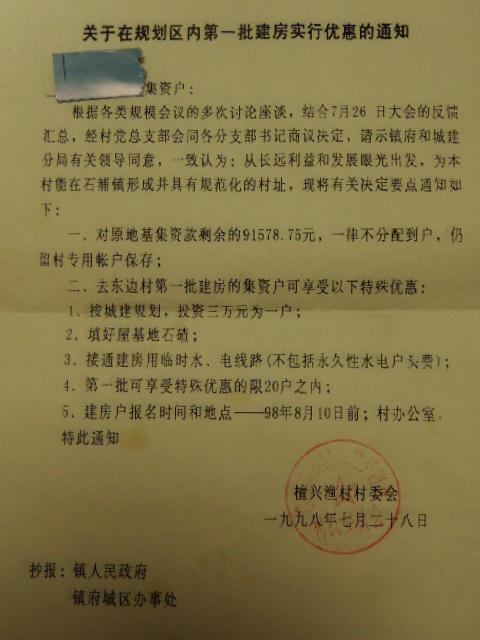 关于在规划区内第一批建房实行优惠的通知
集资户：
根据各类规模会议的多次讨论座谈，结合7月26 日大会的反馈
汇总，经村党总支部会同各分支部书记商议决定，请示镇府和城建
分局有关领导同意，一致认为：从长远利益和发展眼光出发，为本
村能在石浦镇形成并具有规范化的村址，现将有关决定要点通知如
下：
一、对原地基集资款剩余的91578.75元，一律不分配到户，仍
留村专用帐户保存；
二、去东边村第一批建房的集资户可享受以下特殊优惠：
1、按城建规划，投资三万元为一户；
2、填好屋基地石碴；
3、接通建房用临时水、电线路(不包括永久性水电户头费)；
4、第一批可享受特殊优惠的限20户之内；
5、建房户报名时间和地点——98年8月10日前；村办公室。
特此通知
檀兴渔村村委会
一九九八年七月二十八日
抄报：镇人民政府
镇府城区办事处